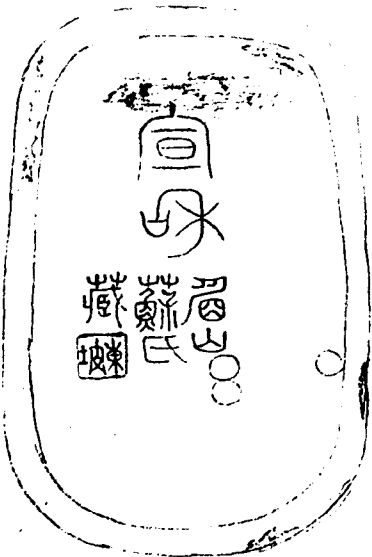 宣和
眉山
蘇氏
藏
東坡